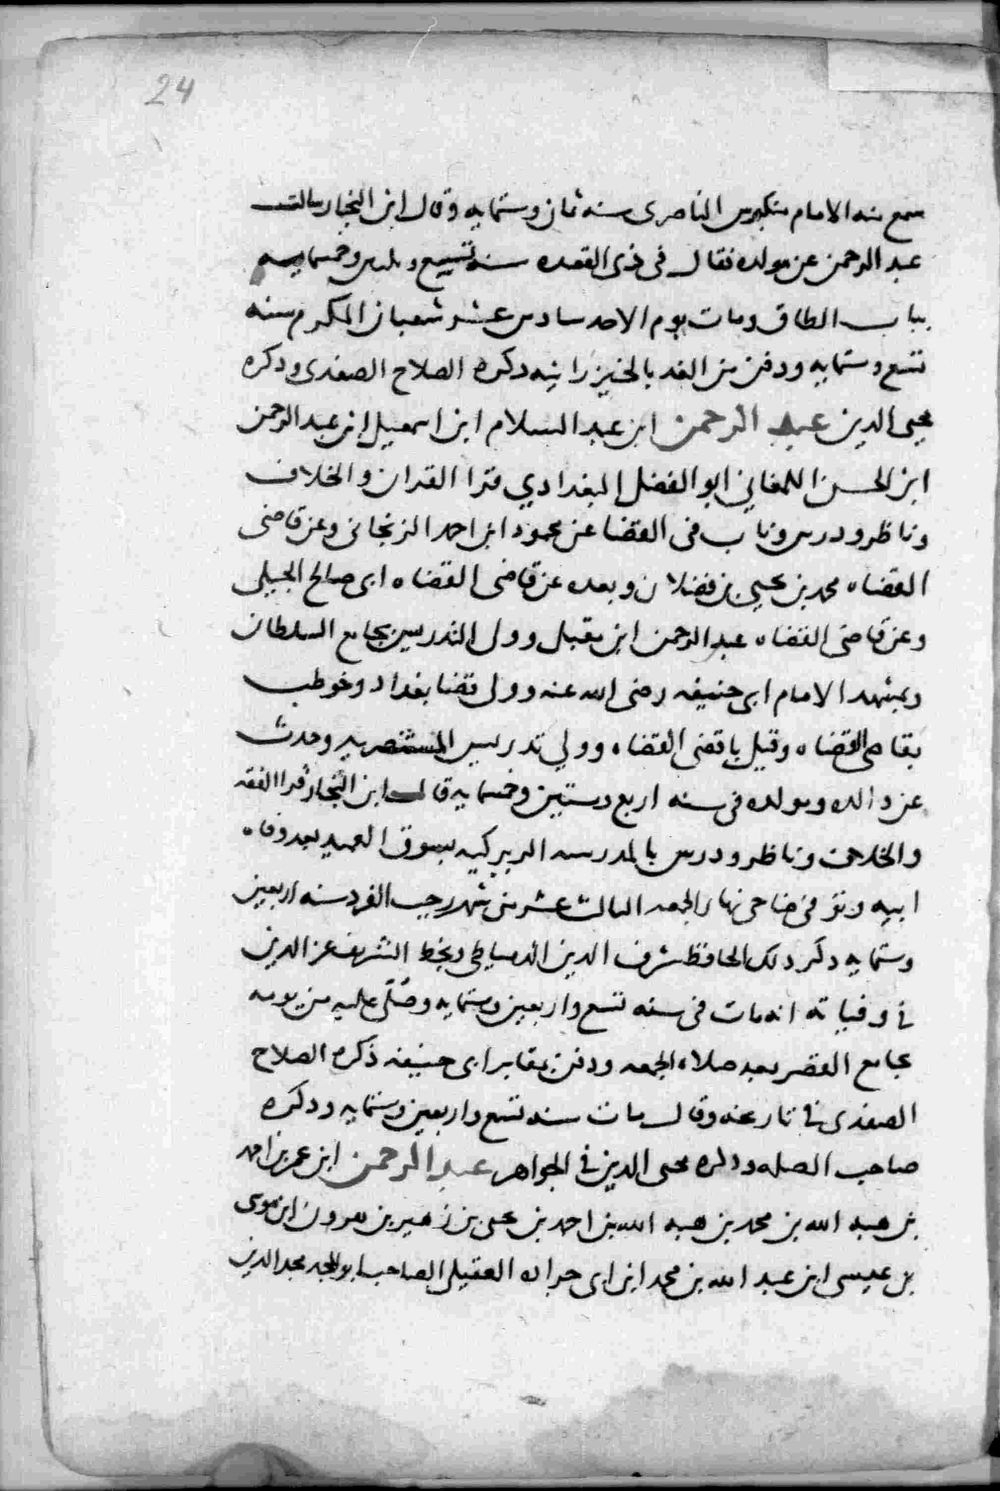 24
سمع منه الامام منكبرس الناصرى سنه ثمان وستمايه وقال ابن النجار سالت
عبد الرحمن عن مولده فقال فى ذى القعده سنه تسع وثلاثين وخمسمايه
بباب الطاق ومات يوم الاحد سادس عشر شعبان المكرم سنه
تسع وستمايه ودفن من الغد بالخيزرانيه دكره الصلاح الصفدى ودكره
محيى الدين عبد الرحمن ابن عبد السلام ابن اسمعيل ابن عبد الرحمن
ابن الحسن اللمغاني ابو الفضل البغدادي قرا القران والخلاف
وناظر ودرس وناب فى القضا عن محمود ابن احمد الزنجانى وعن قاضى
القضاه محمد بن يحيى بن فضلان وبعده عن قاضى القضاه ابى صالح الجيلى
وعن قاضى القضاه عبد الرحمن ابن مقبل وولى التدريس بجامع السلطان
وبمشهد الامام ابى حنيفه رضى الله عنه وولى قضا بغداد وخوطب
بقاضى القضاه وقيل باقضى القضاه وولي تدريس المستنصريه وحدث
عن والده ومولده فى سنه اربع وستين وخمسمايه قال ابن النجار قرا الفقه
والخلاف وناظر ودرس بالمدرسه الزيركيه بسوق العميد بعد وفاه
ابيه وتوفى ضاحى نهار الجمعه الثالث عشر من شهر رجب الفرد سنه اربعين
وستمايه دكر دلك الحافظ شرف الدين الدمياطى وبخط الشريف عز الدين
في وفياته انه مات فى سنه تسع واربعين وستمايه وصُلّى عليه من يومه
بجامع القصر بعد صلاه الجمعه ودفن بمقابر ابى حنيفه ذكره الصلاح
الصفدى في تاريخه وقال مات سنه تسع واربعين وستمايه ودكره
صاحب الصله ودكره محى الدين في الجواهر عبد الرحمن ابن عمر بن احمد
بن هبه الله بن محمد بن هبه الله بن احمد بن يحيى بن زهير بن هرون ابن موسى
بن عيسى ابن عبد الله بن محمد ابن ابى جراده العقيلى الصاحب ابو المجد مجد الدين